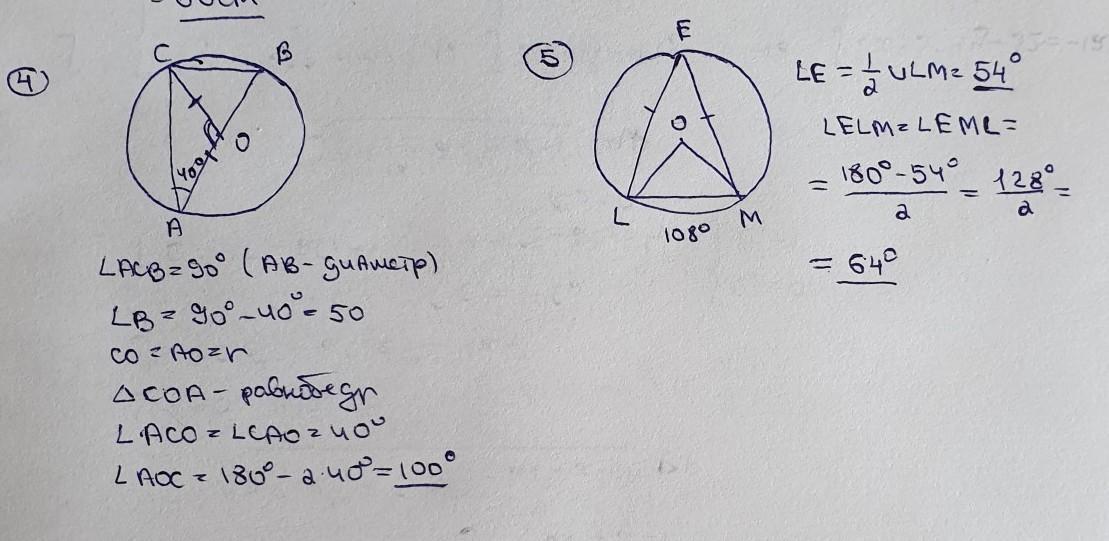 ④
C B
40° O
A
∠ACB = 90° (AB - диаметр)
∠B = 90° - 40° = 50
CO = AO = r
△COA - равнобедр
∠ACO = ∠CAO = 40°
∠AOC = 180° - 2·40° = 100°
⑤
E
O
L M
108°
∠E = 1/2 ∪LM = 54°
∠ELM = ∠EML =
= 180° - 54° / 2 = 128° / 2 =
= 64°